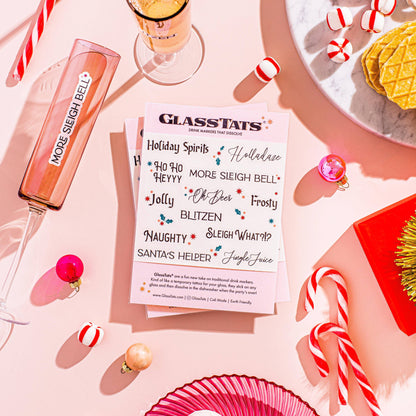 MORE SLEIGH BELL
GLASSTATS®
DRINK MARKERS THAT DISSOLVE
Holiday Spirits
Holladaze
HO HO
HEYYY
MORE SLEIGH BELL
Jolly
Oh Deer
Frosty
BLITZEN
NAUGHTY
SLEIGH WHAT?!?
SANTA'S HELPER
Jingle Juice
GlassTats® are a fun new take on traditional drink markers.
Kind of like a temporary tattoo for your glass, they stick on any
glass and then dissolve in the dishwasher when the party's over!
GlassTats.com | @GlassTats | Cali Made | Earth Friendly